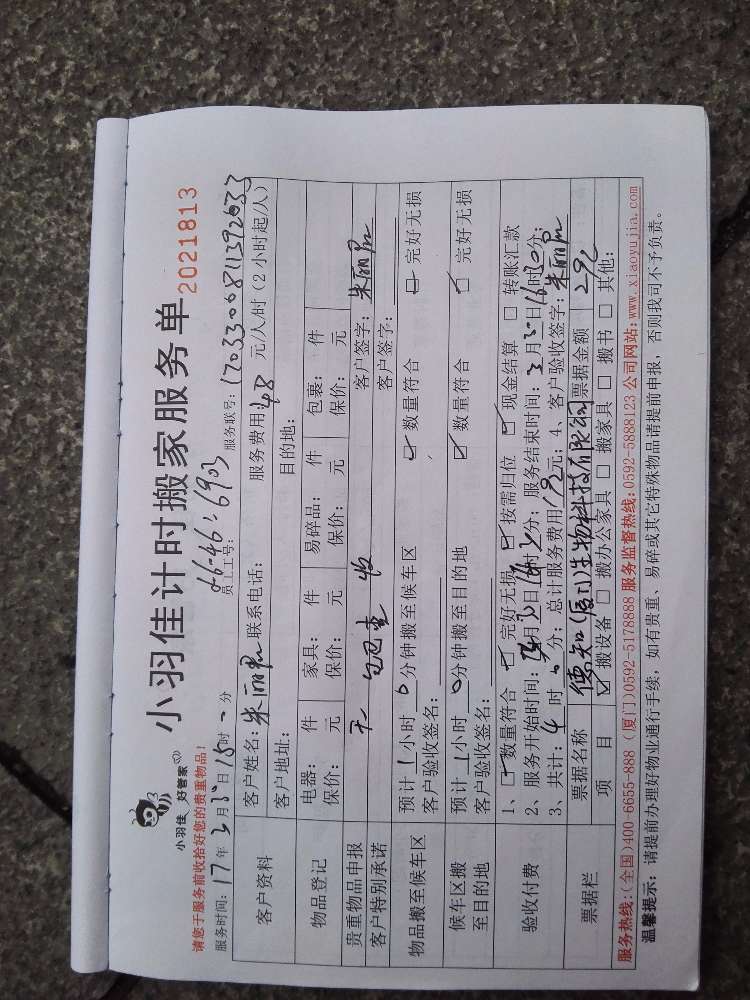 小羽佳 好管家
小羽佳计时搬家服务单
2021813
请您于服务前收拾好您的贵重物品！
员工工号：
服务联号：1703300811392033
服务时间：17年3月 日15时 分
客户资料
客户姓名：朱丽 联系电话： 服务费用：48 元/人/时（2小时起/人）
客户地址： 目的地：
物品登记
电器： 件 家具： 件 易碎品： 件 包裹： 件
保价： 元 保价： 元 保价： 元 保价： 元
贵重物品申报 无 客户签字：朱丽
客户特别承诺 客户签字：
物品搬至候车区
预计1小时0分钟搬至候车区 数量符合 完好无损
客户验收签名：
候车区搬至目的地
预计1小时0分钟搬至目的地 数量符合 完好无损
客户验收签名：
验收付费
1、数量符合 完好无损 按需归位 现金结算 转账汇款
2、服务开始时间： 月 日 时 分；服务结束时间：3月 日 时30分；
3、共计：4时 分；总计服务费用 元；4、客户验收签字：朱丽
票据栏
票据名称 德知(厦门)生物科技有限公司 票据金额 292
项 目 搬设备 搬办公家具 搬家具 搬书 其他：
服务热线：(全国)400-6655-888 (厦门)0592-5178888 服务监督热线：0592-5888123 公司网站：www.xiaoyujia.com
温馨提示：请提前办理好物业通行手续，如有贵重、易碎或其它特殊物品请提前申报，否则我司不予负责。